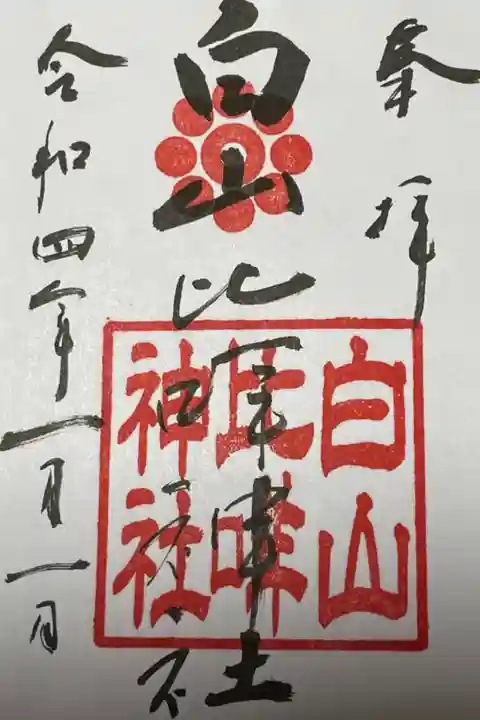 奉拝
白山比咩神社
令和四年一月一日
白山
比咩
神社